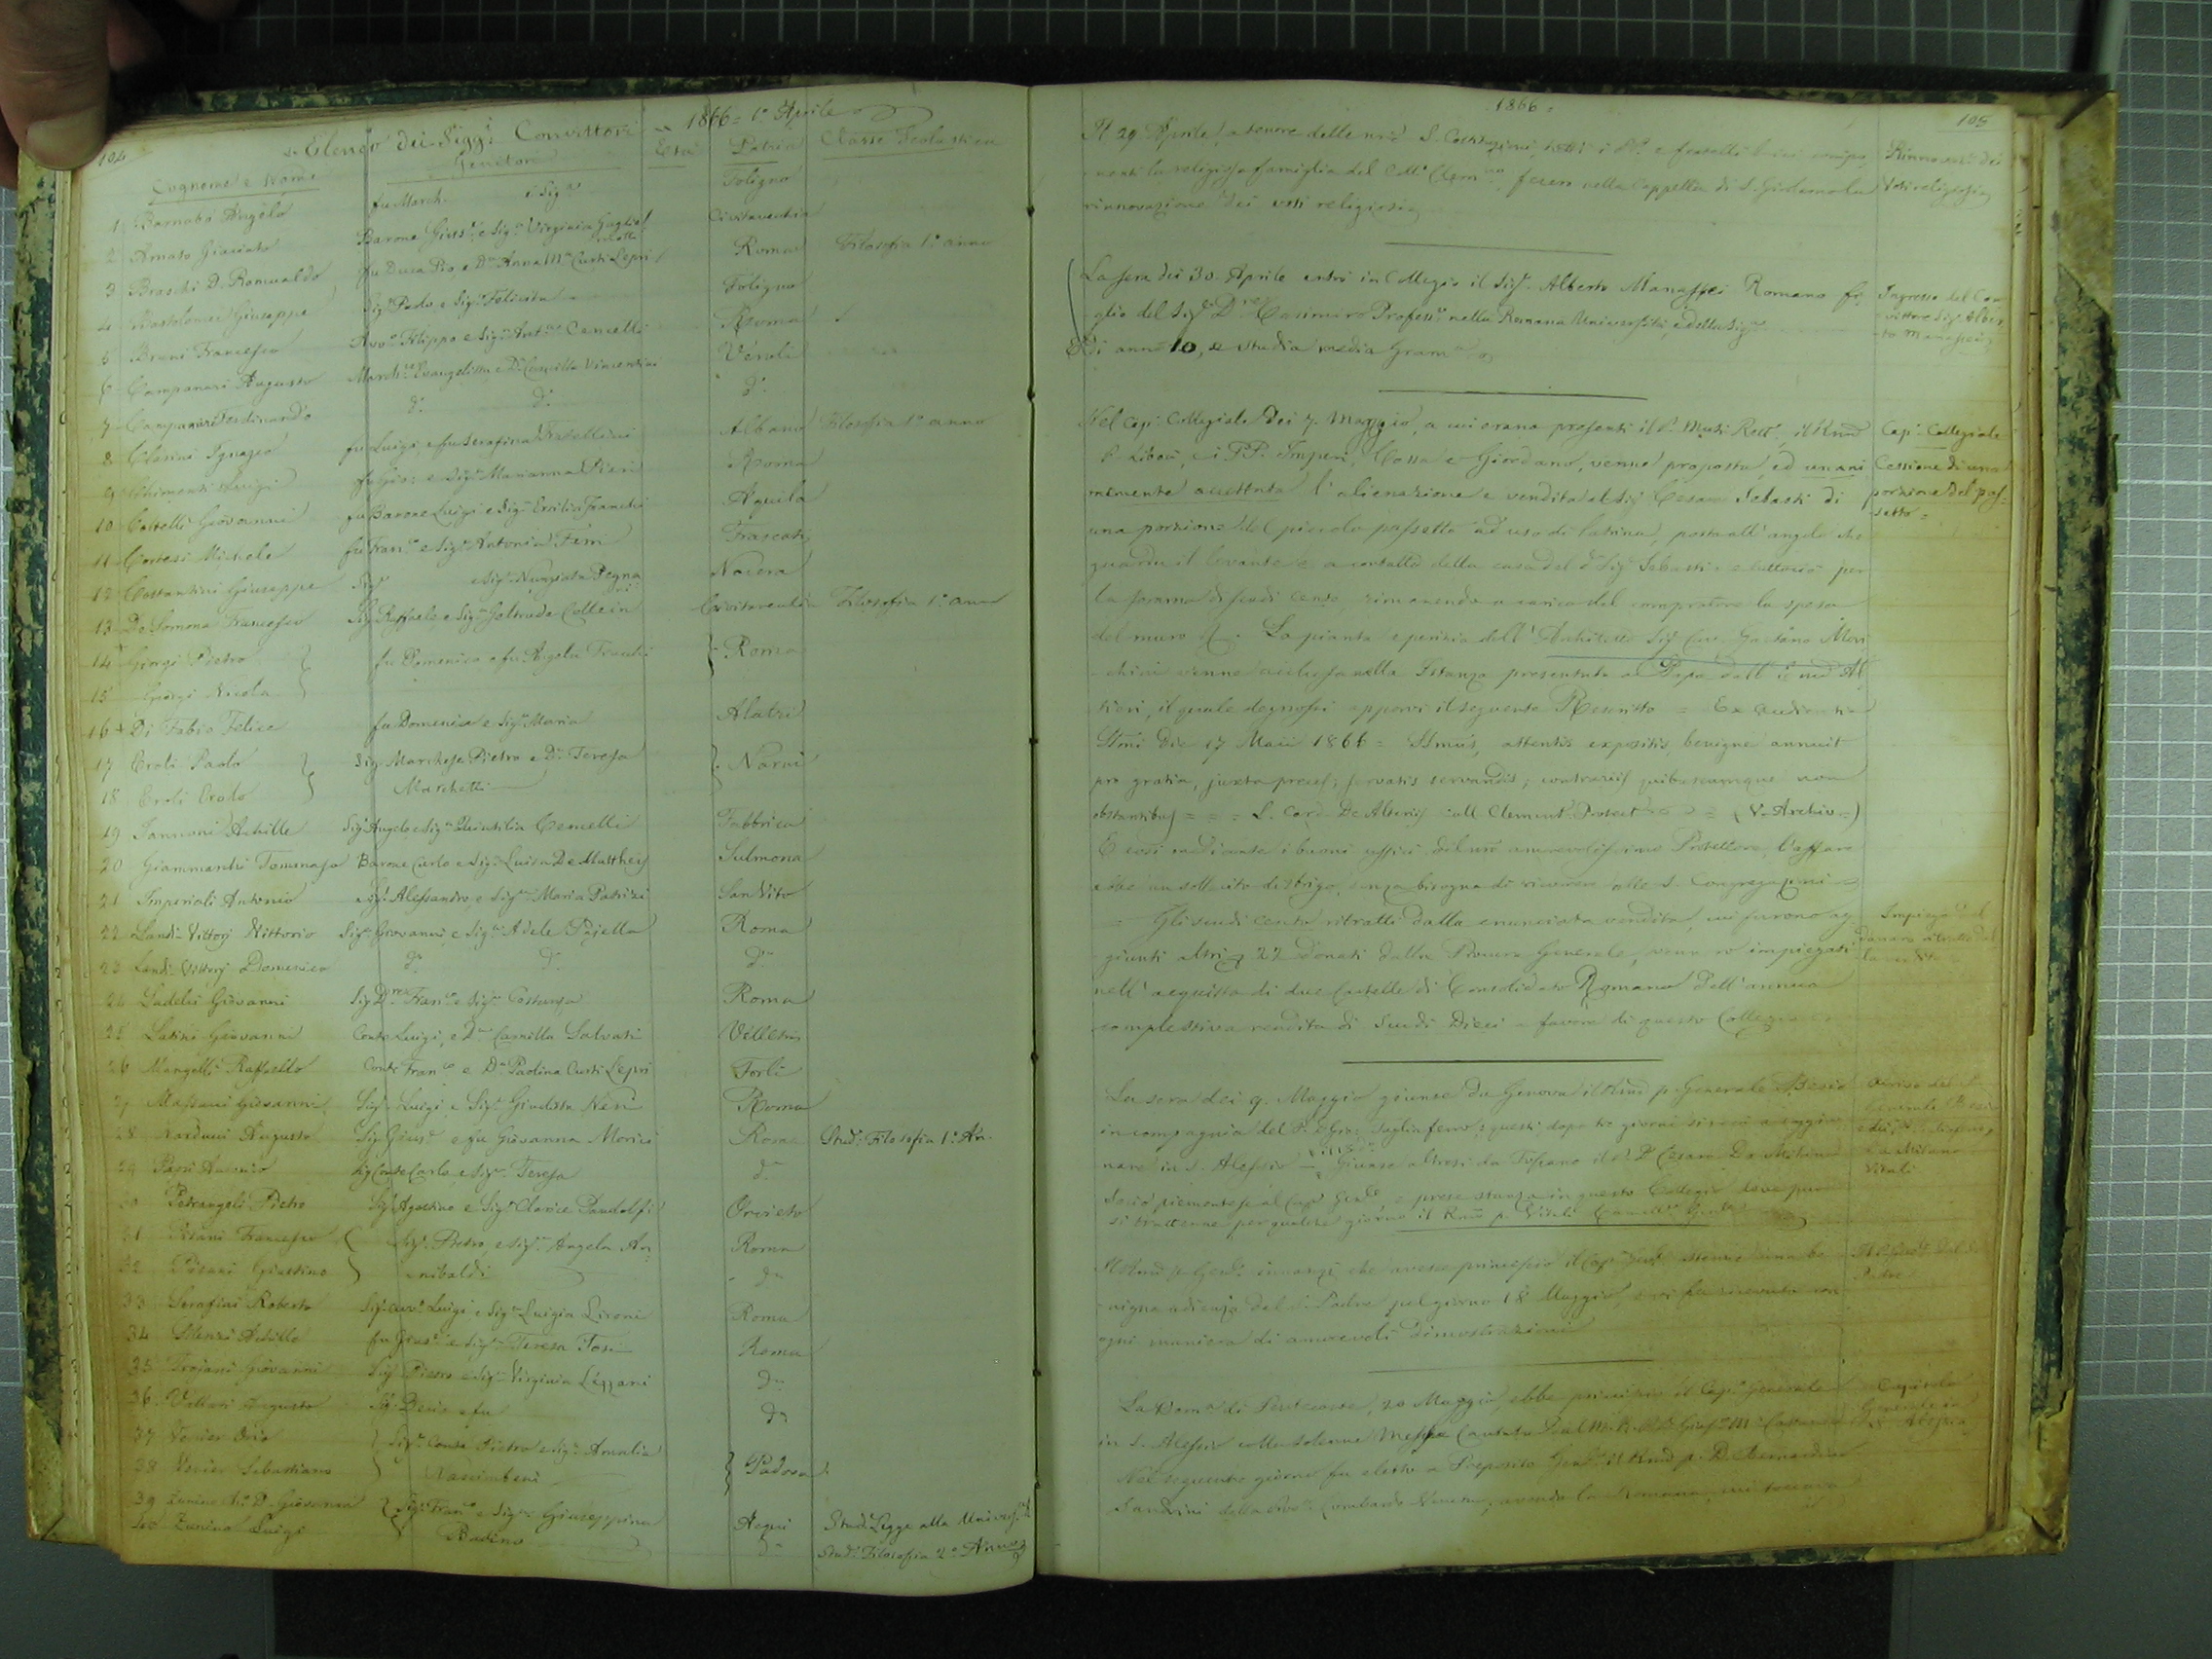 104
Elenco dei Sigg.i Convittori = 1866 = 1° Aprile
Cognome e Nome Genitori Età Patria Classe Scolastica
1 Barnabò Angelo fu March. e Sig.a Foligno
2 Amato Giacinto Barone Gius.e e Sig.a Virginia Civitavecchia
3 Braschi D. Romualdo fu Duca Pio, e D.a Anna M.a Curti Lepri Roma Filosofia 1° anno
4 Bartolomei Giuseppe Sig. Paolo e Sig.a Felicita Foligno
5 Bruni Francesco Avv.o Filippo e Sig.a Cencelli Roma
6 Campanari Augusto March.e Evangelista e D.a Camilla Vincentini Veroli
7 Campanari Ferdinando d.o d.a d.o
8 Clarini Ignazio fu Luigi, e fu Serafina Fratellini Albano Filosofia 1° anno
9 Chimenti Luigi fu Gio: e Sig.a Marianna Pieri Roma
10 Cottelli Giovanni fu Barone Luigi e Sig.a Ersilia Franchi Aquila
11 Cortesi Michele fu Fran.co e Sig.a Antonia Ferri Frascati
12 Costantini Giuseppe Sig.r e Sig.a Nunziata Pegna Nocera
13 De Somona Francesco Sig. Raffaele e Sig.a Geltrude Collein Civitavecchia Filosofia 1° anno
14 Giorgi Pietro fu Domenico e fu Angela Roma
15 Giorgi Nicola
16 + Di Fabio Felice fu Domenico e Sig.a Maria Alatri
17 Eroli Paolo Sig. Marchese Pietro e D.a Teresa Narni
18 Eroli Erolo Marchetti
19 Jannoni Achille Sig. Angelo e Sig.a Quintilia Cencelli Fabbrica
20 Giammarchi Tommaso Barone Carlo e Sig.a Luisa De Mattheis Sulmona
21 Imperiali Antonio Sig. Alessandro, e Sig.a Maria Patrizi San Vito
22 Landi-Vittorj Vittorio Sig. Giovanni e Sig.a Adele Pajella Roma
23 Landi-Vittorj Domenico d.o d.a d.o
24 Ladelci Giovanni Sig. D.re Fran.co e Sig.a Costanza Roma
25 Latini Giovanni Conte Luigi, e D.a Camilla Salvati Velletri
26 Mangelli Raffaello Conte Fran.co e D.a Paolina Curti Lepri Forlì
27 Massani Giovanni Sig. Luigi e Sig.a Giuditta Neri Roma
28 Narducci Augusto Sig. Gius.e e fu Giovanna Morici Roma Stud: Filosofia 1° An.
29 Pasi Antonio Sig. Conte Carlo, e Sig.a Teresa d.o
30 Petrangeli Pietro Sig. Agostino e Sig.a Clarice Pandolfi Orvieto
31 Pisani Francesco Sig. Pietro, e Sig.a Angela An- Roma
32 Pisani Giustino nibaldi d.o
33 Serafini Roberto Sig. Avv.o Luigi e Sig.a Luigia Lironi Roma
34 Achille fu Gius.e e Sig.a Teresa Tosi Roma
35 Trojani Giovanni Sig. Pietro e Sig.a Virginia Lizzani d.o
36 Vettori Augusto Sig. Decio e fu d.o
37 Venier Orio Sig. Conte Pietro e Sig.a Amalia
38 Venier Sebastiano Nascimbeni Padova
39 D. Giovanni Sig. Fran.co e Sig.a Giuseppina Acqui Stud: Legge alla Univers.tà
40 Zunino Luigi Badino d.o Stud: Filosofia 2° Anno
1866 =
105
Il 29 Aprile, a tenore delle S. Costituzioni, tutti i PP. e fratelli laici compo-
nenti la religiosa famiglia del Coll. Clem.no, fecero nella Cappella di S. Girolamo la
rinnovazione dei voti religiosi
Rinnovaz. dei
Voti religiosi
La sera dei 30. Aprile entrò in Collegio il Sig. Alberto Manassei Romano fi-
glio del Sig. D.re Casimiro Profess.e nella Romana Università, e della Sig.a
Di anni 10, e studia media Gram.a
Ingresso del Con-
vittore Sig. Alber-
to Manassei
Nel Cap. Collegiale dei 7. Maggio, a cui erano presenti il P. Muti Rett.e, il Rmo
P. Libois, e i PP. Imperi, Cossa e Giordano, venne proposta, ed unani-
memente accettata l'alienazione e vendita al Sig. Cesare Sebasti di
una porzione del piccolo passetto ad uso di latrina, posta all'angolo che
guarda il levante e a contatto della casa del d.o Sig. Sebasti: e tuttociò per
la somma di scudi cento, rimanendo a carico del compratore la spesa
del muro &. La pianta e perizia dell'Architetto Sig. Cav. Gaetano Mori-
chini venne acclusa nella Istanza presentata al Papa dall' Al-
tieri, il quale degnossi apporvi il seguente Rescritto = Ex audientia
SSmi Die 17 Maii 1866 = SSmus, attentis expositis benigne annuit
pro gratia, juxta preces; servatis servandis; contrariis quibuscumque non
obstantibus = = = L. Card. De Alteriis Coll. Clement. Protect = (V. Archivio)
E così mediante i buoni uffici del amorevolissimo Protettore, l'affare
ebbe un sollecito disbrigo, senza bisogno di ricorrere alle S. Congregazioni
Cap. Collegiale
Cessione di una
porzione del pas-
setto =
Gli scudi cento ritratti dalla enunciata vendita, cui furono ag-
giunti altri 22 donati dalla Procura Generale, vennero impiegati
nell'acquisto di due Cartelle di Consolidato Romano dell'annua
complessiva rendita di Scudi Dieci a favore di questo Collegio
Impiego del
danaro ritratto dal-
la vendita
La sera dei 9. Maggio giunse da Genova il Rmo p. Generale
in compagnia del P. Gio: Tagliaferro; questi dopo tre giorni si recò a soggior-
nare in S. Alessio. Giunse altresì da Fossano il P. D. Cesare De Milano
Socio piemontese al Cap. Gen.le, e prese stanza in questo Collegio dove pure
si trattenne per qualche giorno il Rmo p. Vitali
Arrivo del P.
Generale
De Milano
Vitali
Il Rmo p. Gen.le innanzi che avesse principio il Cap. Gen.le ottenne una be-
nigna udienza dal S. Padre pel giorno 18 Maggio, e vi fu ricevuto con
ogni maniera di amorevoli dimostrazioni
Il P. Gen.le dal S.
Padre
La Dom.a di Pentecoste, 20 Maggio, ebbe principio il Cap. Generale
in S. Alessio colla solenne Messa Cantata dal
Nel seguente giorno fu eletto a Preposito Gen.le il Rmo p. D. Bernardino
Sandrini della Prov.a Lombardo Veneta, avendo la Romana, cui toccava
Capitolo
Generale in
S. Alessio